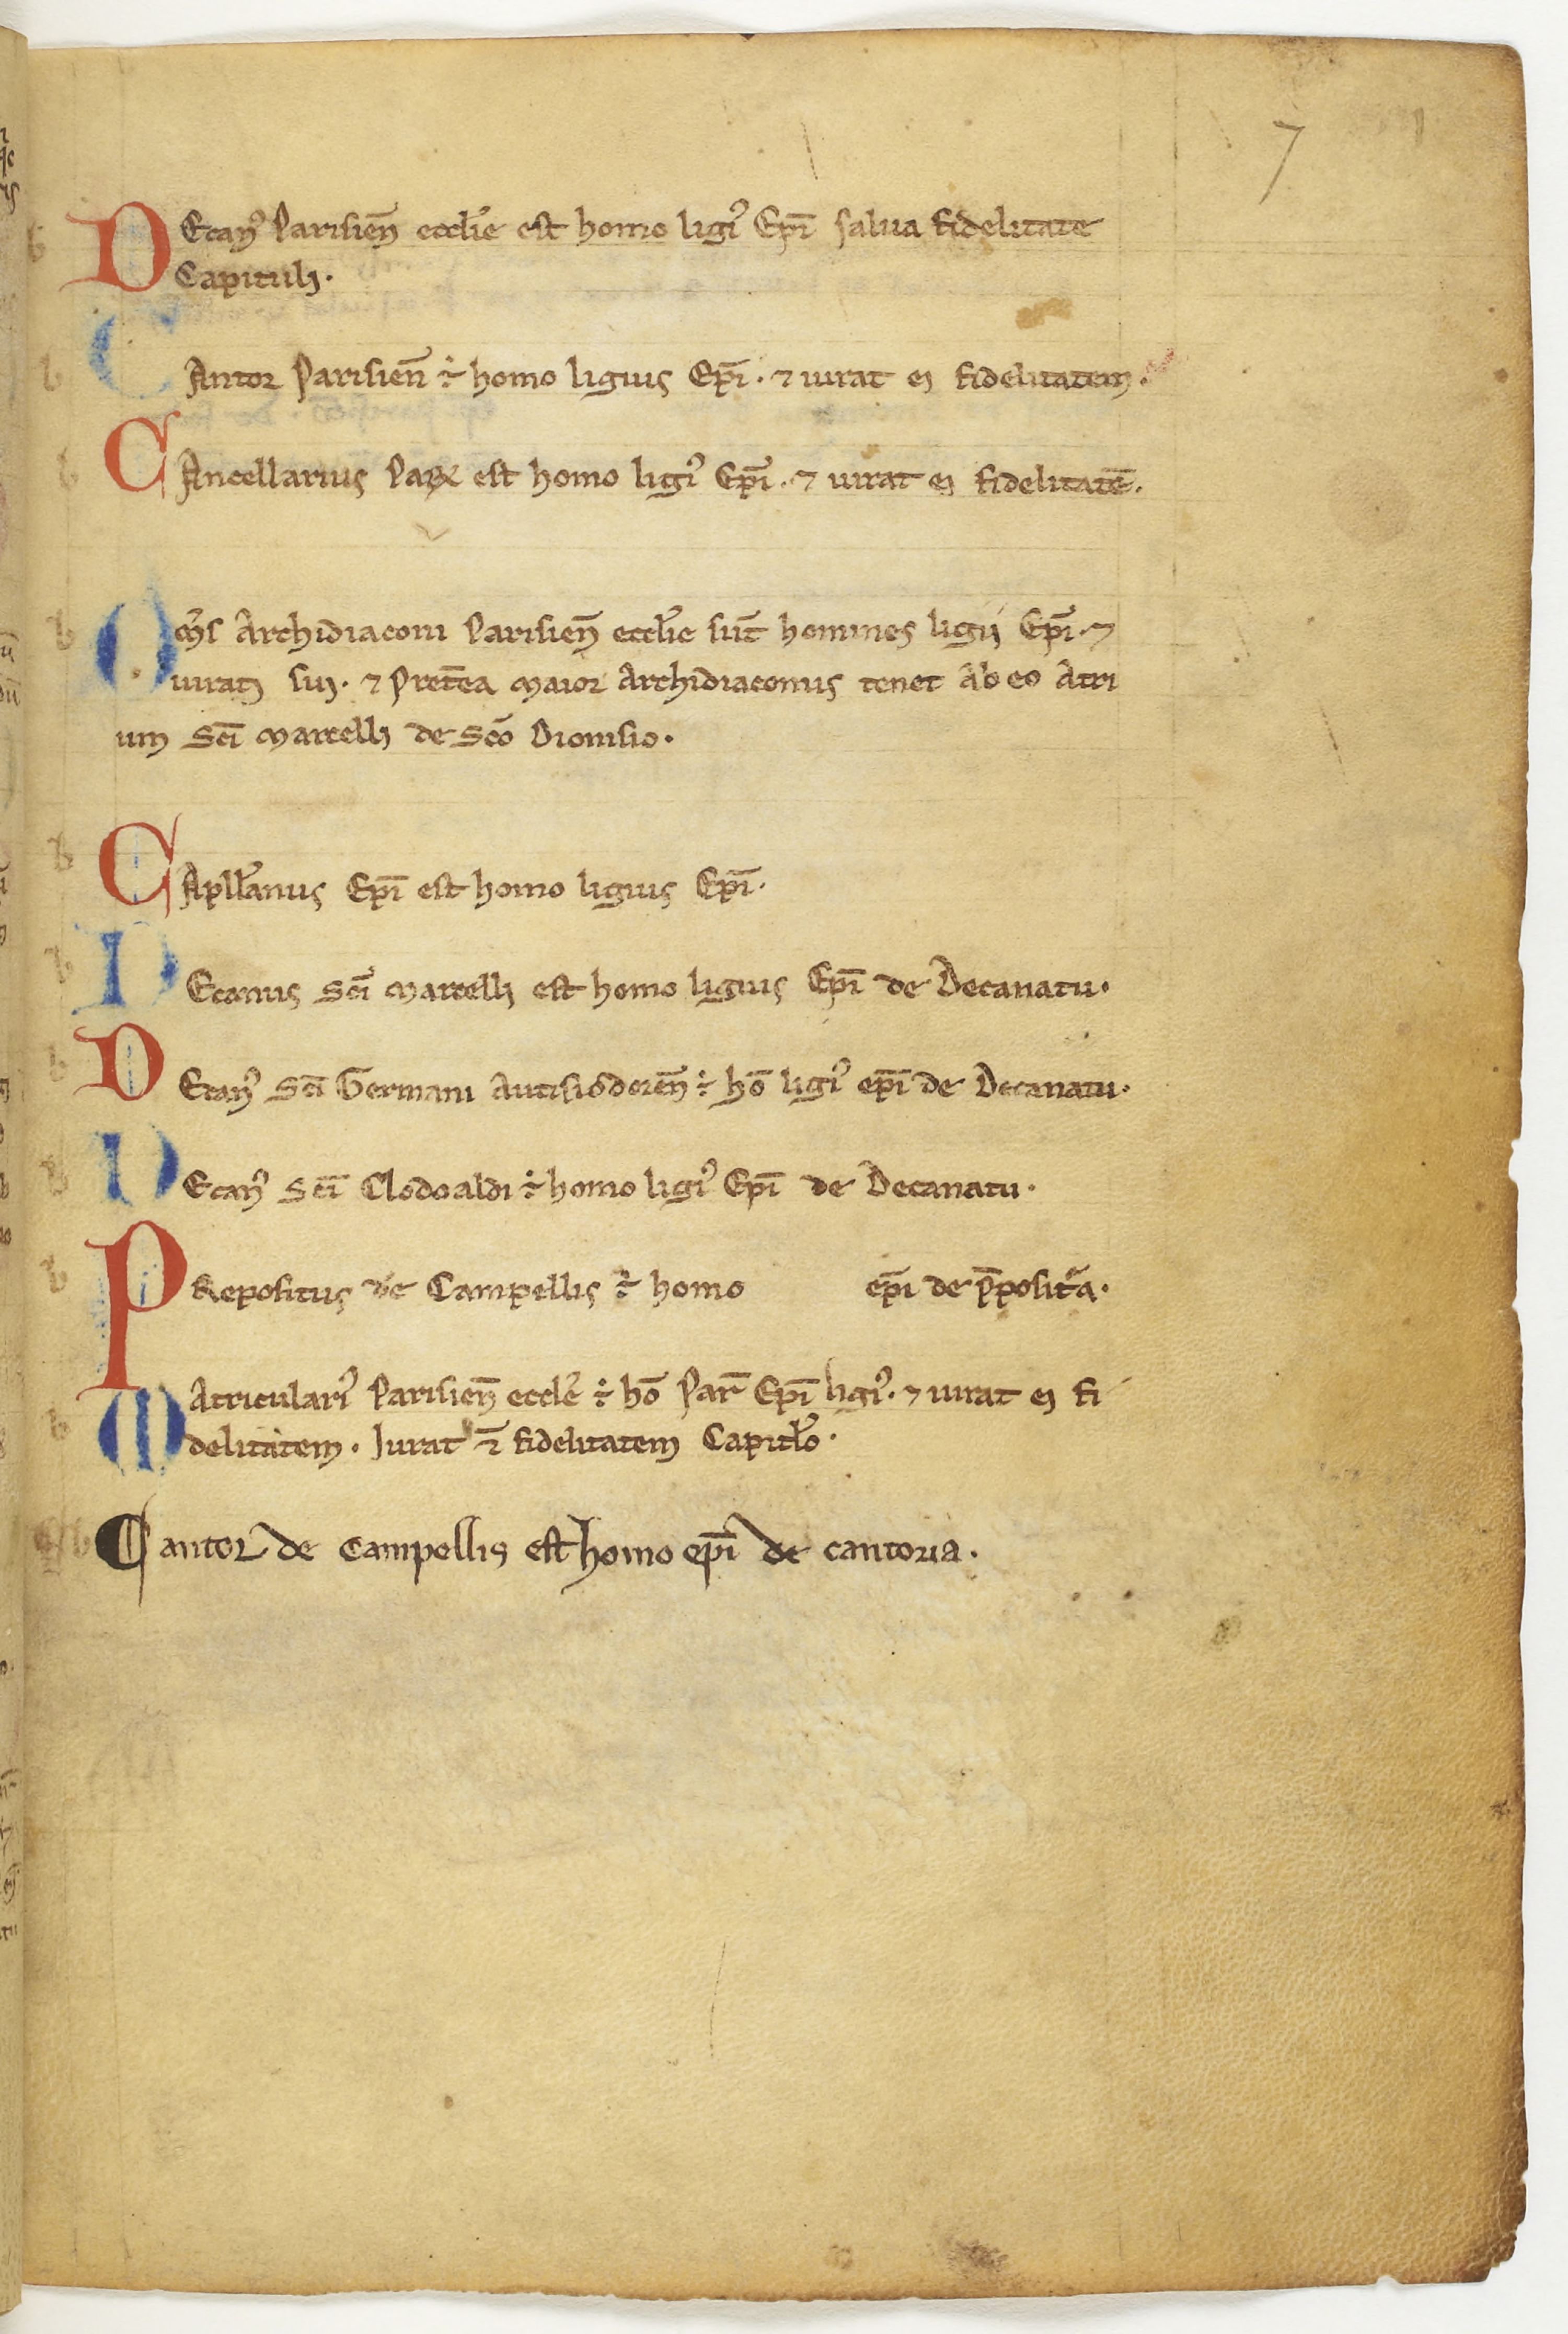 7
DEcan⁹ Parisien̄ eccl̄ie est homo ligi⁹ Ep̄i salua fidelitate
Capituli.
CAntor Parisien̄ ÷ homo ligius Ep̄i. ⁊ iurat ei fidelitatem.
CAncellarius Par̄ est homo ligi⁹ Ep̄i. ⁊ iurat ei fidelitatē.
Om̄s Archidiaconi Parisien̄ eccl̄ie sūt homines ligii Ep̄i. ⁊
iurati sui. ⁊ Pretēa maior Archidiaconus tenet ab eo Atri
um Sc̄i Marcelli de Sc̄o Dionisio.
CApll̄anus Ep̄i est homo ligius Ep̄i.
DEcanus Sc̄i Marcelli est homo ligius Ep̄i de Decanatu.
DEcan⁹ Sc̄i Germani Autisiodoren̄ ÷ hō ligi⁹ ep̄i de Decanatu.
DEcan⁹ Sc̄i Clodoaldi ÷ homo ligi⁹ Ep̄i de Decanatu.
PRepositus de Campellis ÷ homo ep̄i de p̄positā.
MAtriculari⁹ Parisien̄ eccl̄e ÷ hō Par̄ Ep̄i ligi⁹. ⁊ iurat ei fi
delitatem. Jurat ⁊̄ fidelitatem Capitl̄o.
Cantor de Campellis est homo ep̄i de cantoria.